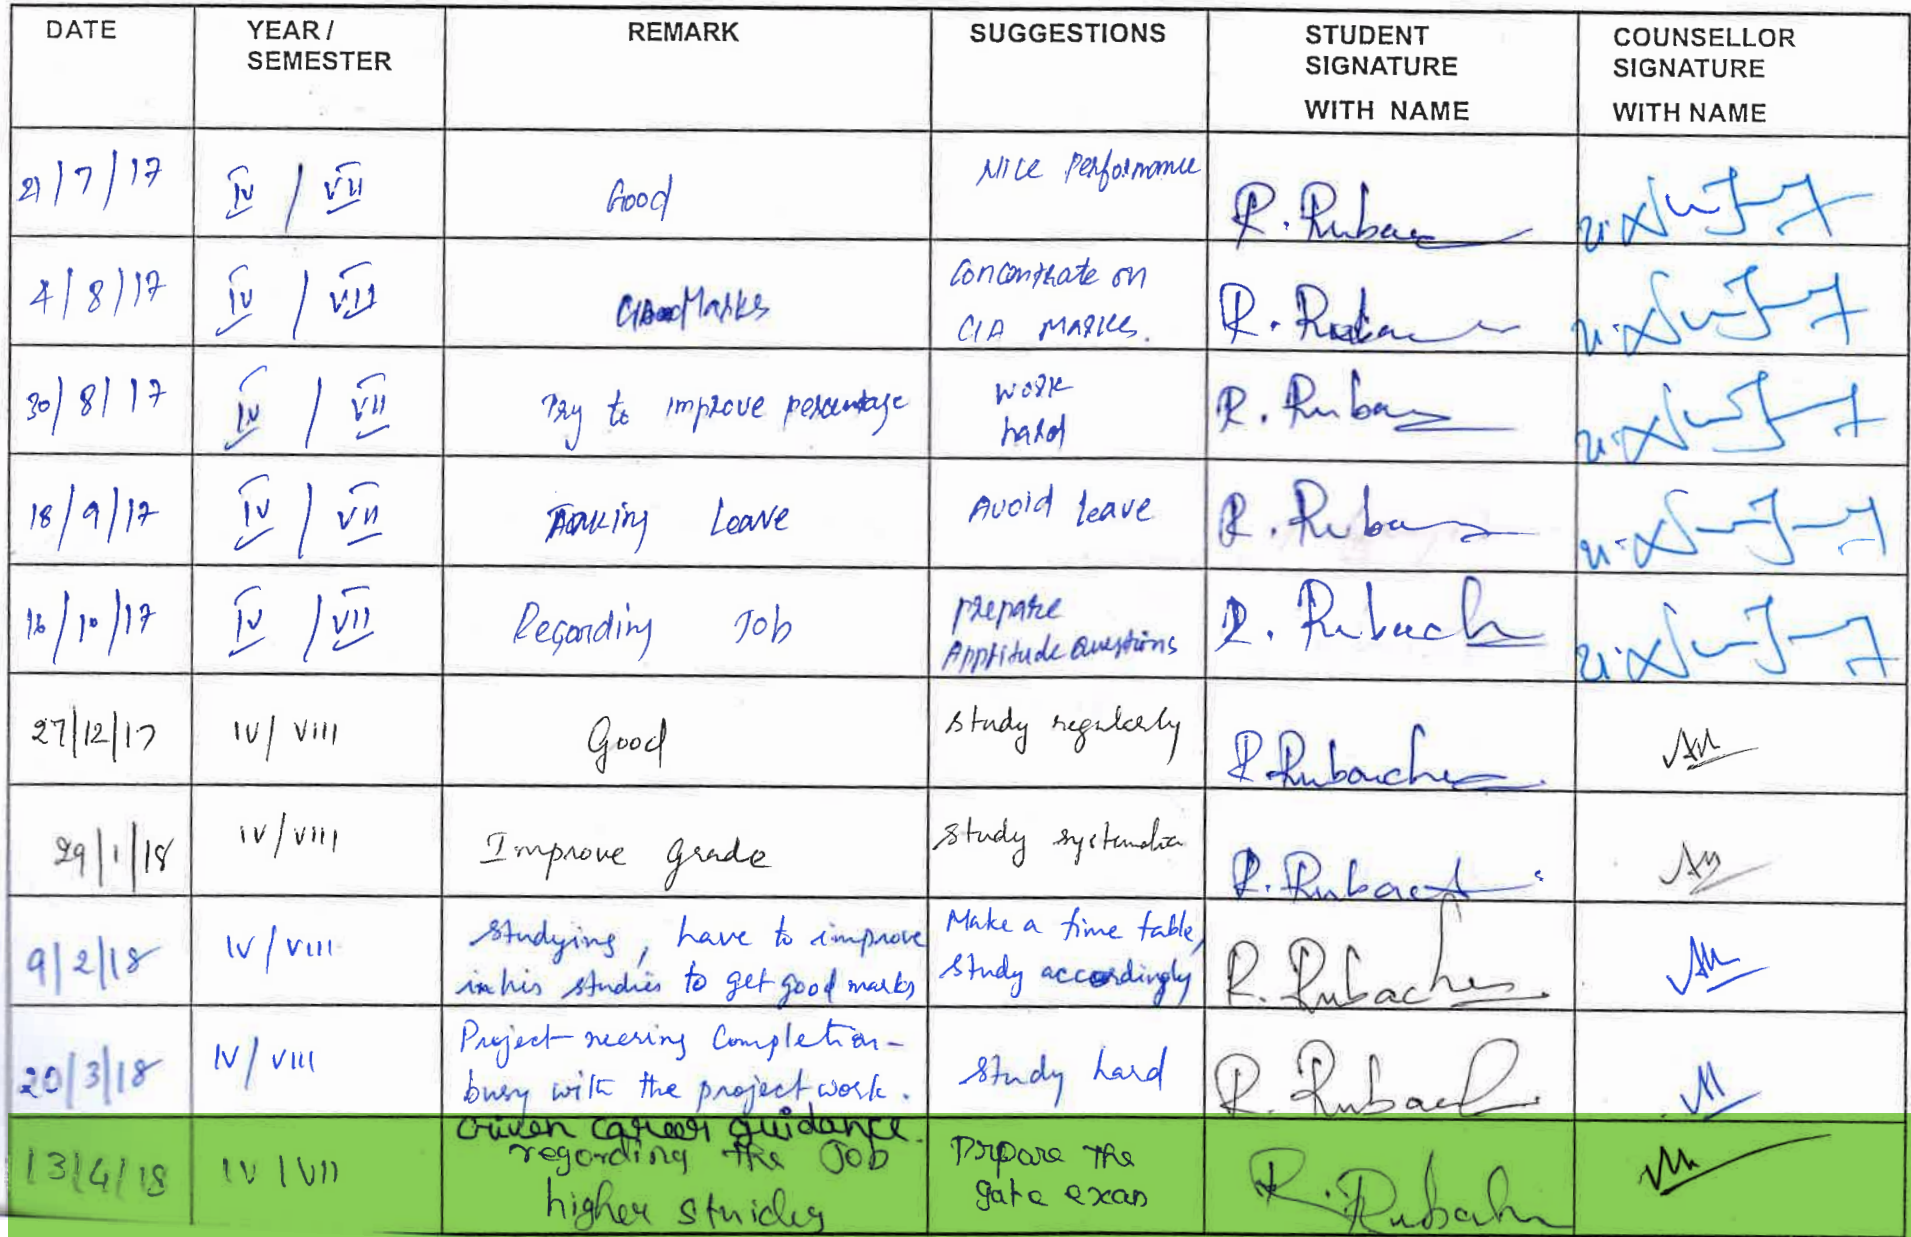 DATE
YEAR /
SEMESTER
REMARK
SUGGESTIONS
STUDENT
SIGNATURE
WITH NAME
COUNSELLOR
SIGNATURE
WITH NAME
21/7/17
IV / VII
Good
Nice Performance
R. Ruba
4/8/17
IV / VII
Marks
Concentrate on
CIA Marks.
R. Ruba
30/8/17
IV / VII
Try to improve percentage
work
hard
R. Ruba
18/9/17
IV / VII
Taking Leave
Avoid leave
R. Ruba
16/10/17
IV / VII
Regarding Job
prepare
Apptitude Questions
R. Rubach
27/12/17
IV / VIII
Good
Study regularly
R. Rubache
29/1/18
IV / VIII
Improve grade
Study
R. Rubach
9/2/18
IV / VIII
Studying, have to improve
in his studies to get good marks
Make a time table,
Study accordingly
R. Rubache
20/3/18
IV / VIII
Project neering Completion-
busy with the project work.
Study hard
R. Rubach
13/4/18
IV / VII
Given career guidance.
regarding the Job
higher
Prpare the
gate
R. Rubach